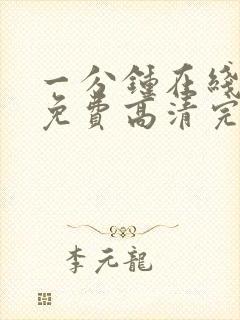 一分鍾在綫
免費高清完
李元龍